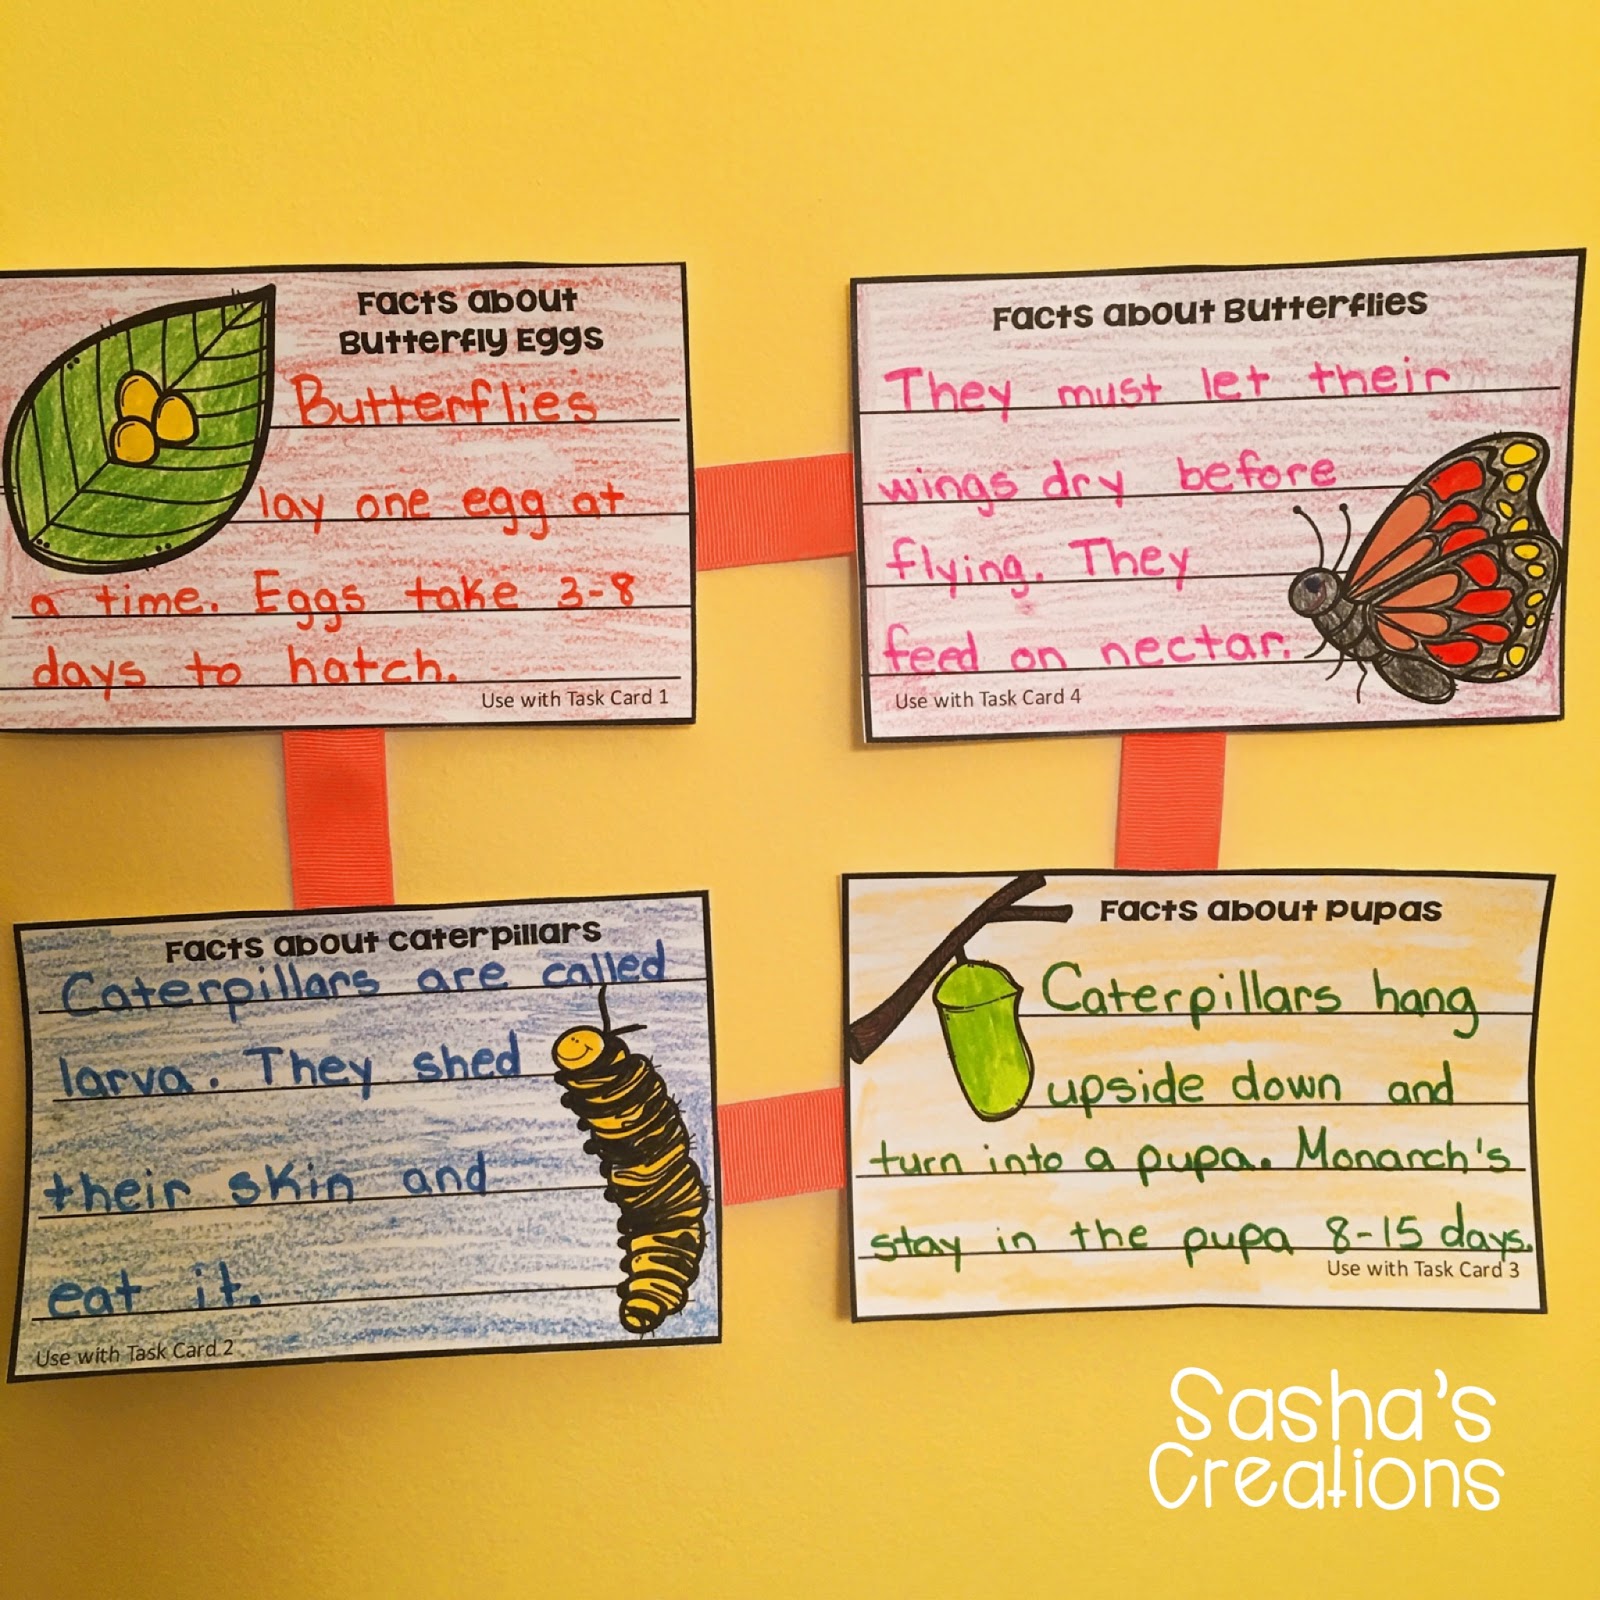 Facts about
Butterfly Eggs
Butterflies
lay one egg at
a time. Eggs take 3-8
days to hatch.
Use with Task Card 1
Facts about Butterflies
They must let their
wings dry before
flying. They
feed on nectar.
Use with Task Card 4
Facts about Caterpillars
Caterpillars are called
larva. They shed
their skin and
eat it.
Use with Task Card 2
Facts about Pupas
Caterpillars hang
upside down and
turn into a pupa. Monarch's
stay in the pupa 8-15 days.
Use with Task Card 3
Sasha's
Creations